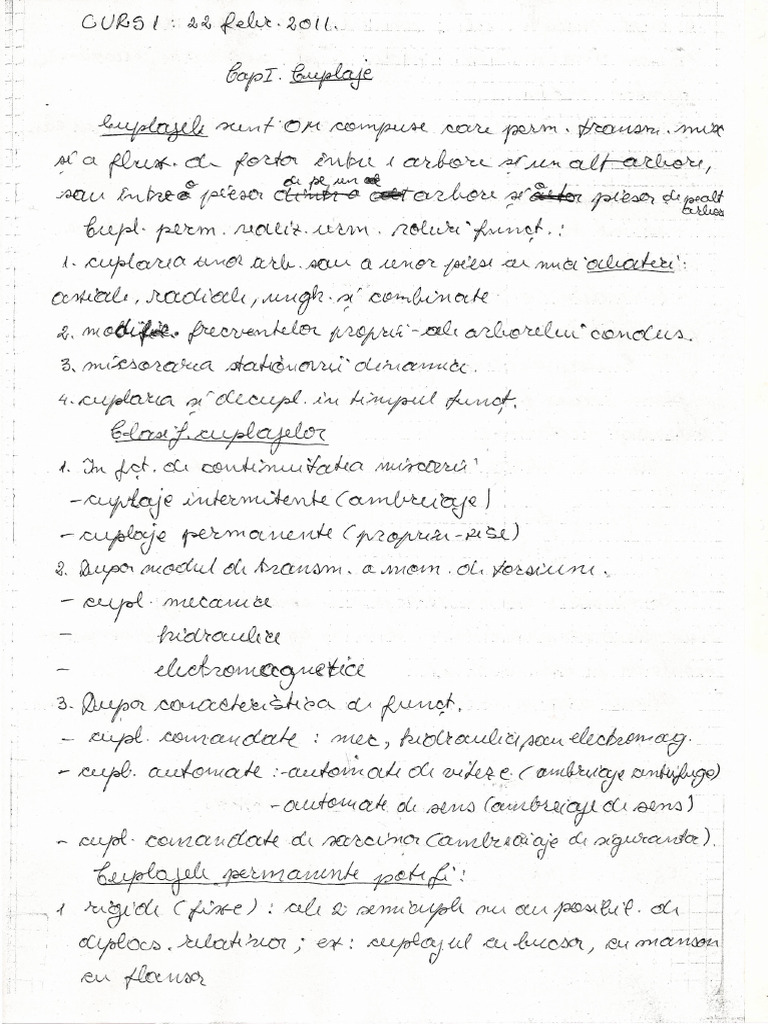 CURS 1 : 22 febr. 2011.
Cap I. Cuplaje
Cuplajele sunt OM compuse care perm. transm. misc
și a flux. de forța între 1 arbore și un alt arbore,
sau între o piesa de pe un arbore și o piesa de pe alt arbore
Cupl. perm. realiz. urm. roluri funcț. :
1. cuplarea unor arb. sau a unor piese cu mici abateri :
axiale, radiale, ungh. și combinate
2. modific. frecventelor proprii-ale arborelui condus.
3. micsorarea dinamice.
4. cuplarea și decupl. in timpul funcț.
Clasif. cuplajelor
1. In fct. de continuitatea miscarii
- cuplaje intermitente (ambreiaje)
- cuplaje permanente (propriu-zise)
2. Dupa modul de transm. a mom. de torsiune.
- cupl. mecanice
- hidraulice
- electromagnetice
3. Dupa caracteristica de funcț.
- cupl. comandate : mec, hidraulici sau electromag.
- cupl. automate : -automate de viteze (ambreiaje centrifuge)
- automate de sens (ambreiaje de sens)
- cupl. comandate de sarcina (ambreiaje de siguranta).
Cuplajele permanente pot fi :
1 rigide (fixe) : cele 2 semicuple nu au posibil. de
deplas. relativa ; ex : cuplajul cu bucsa, cu manson
cu flansa